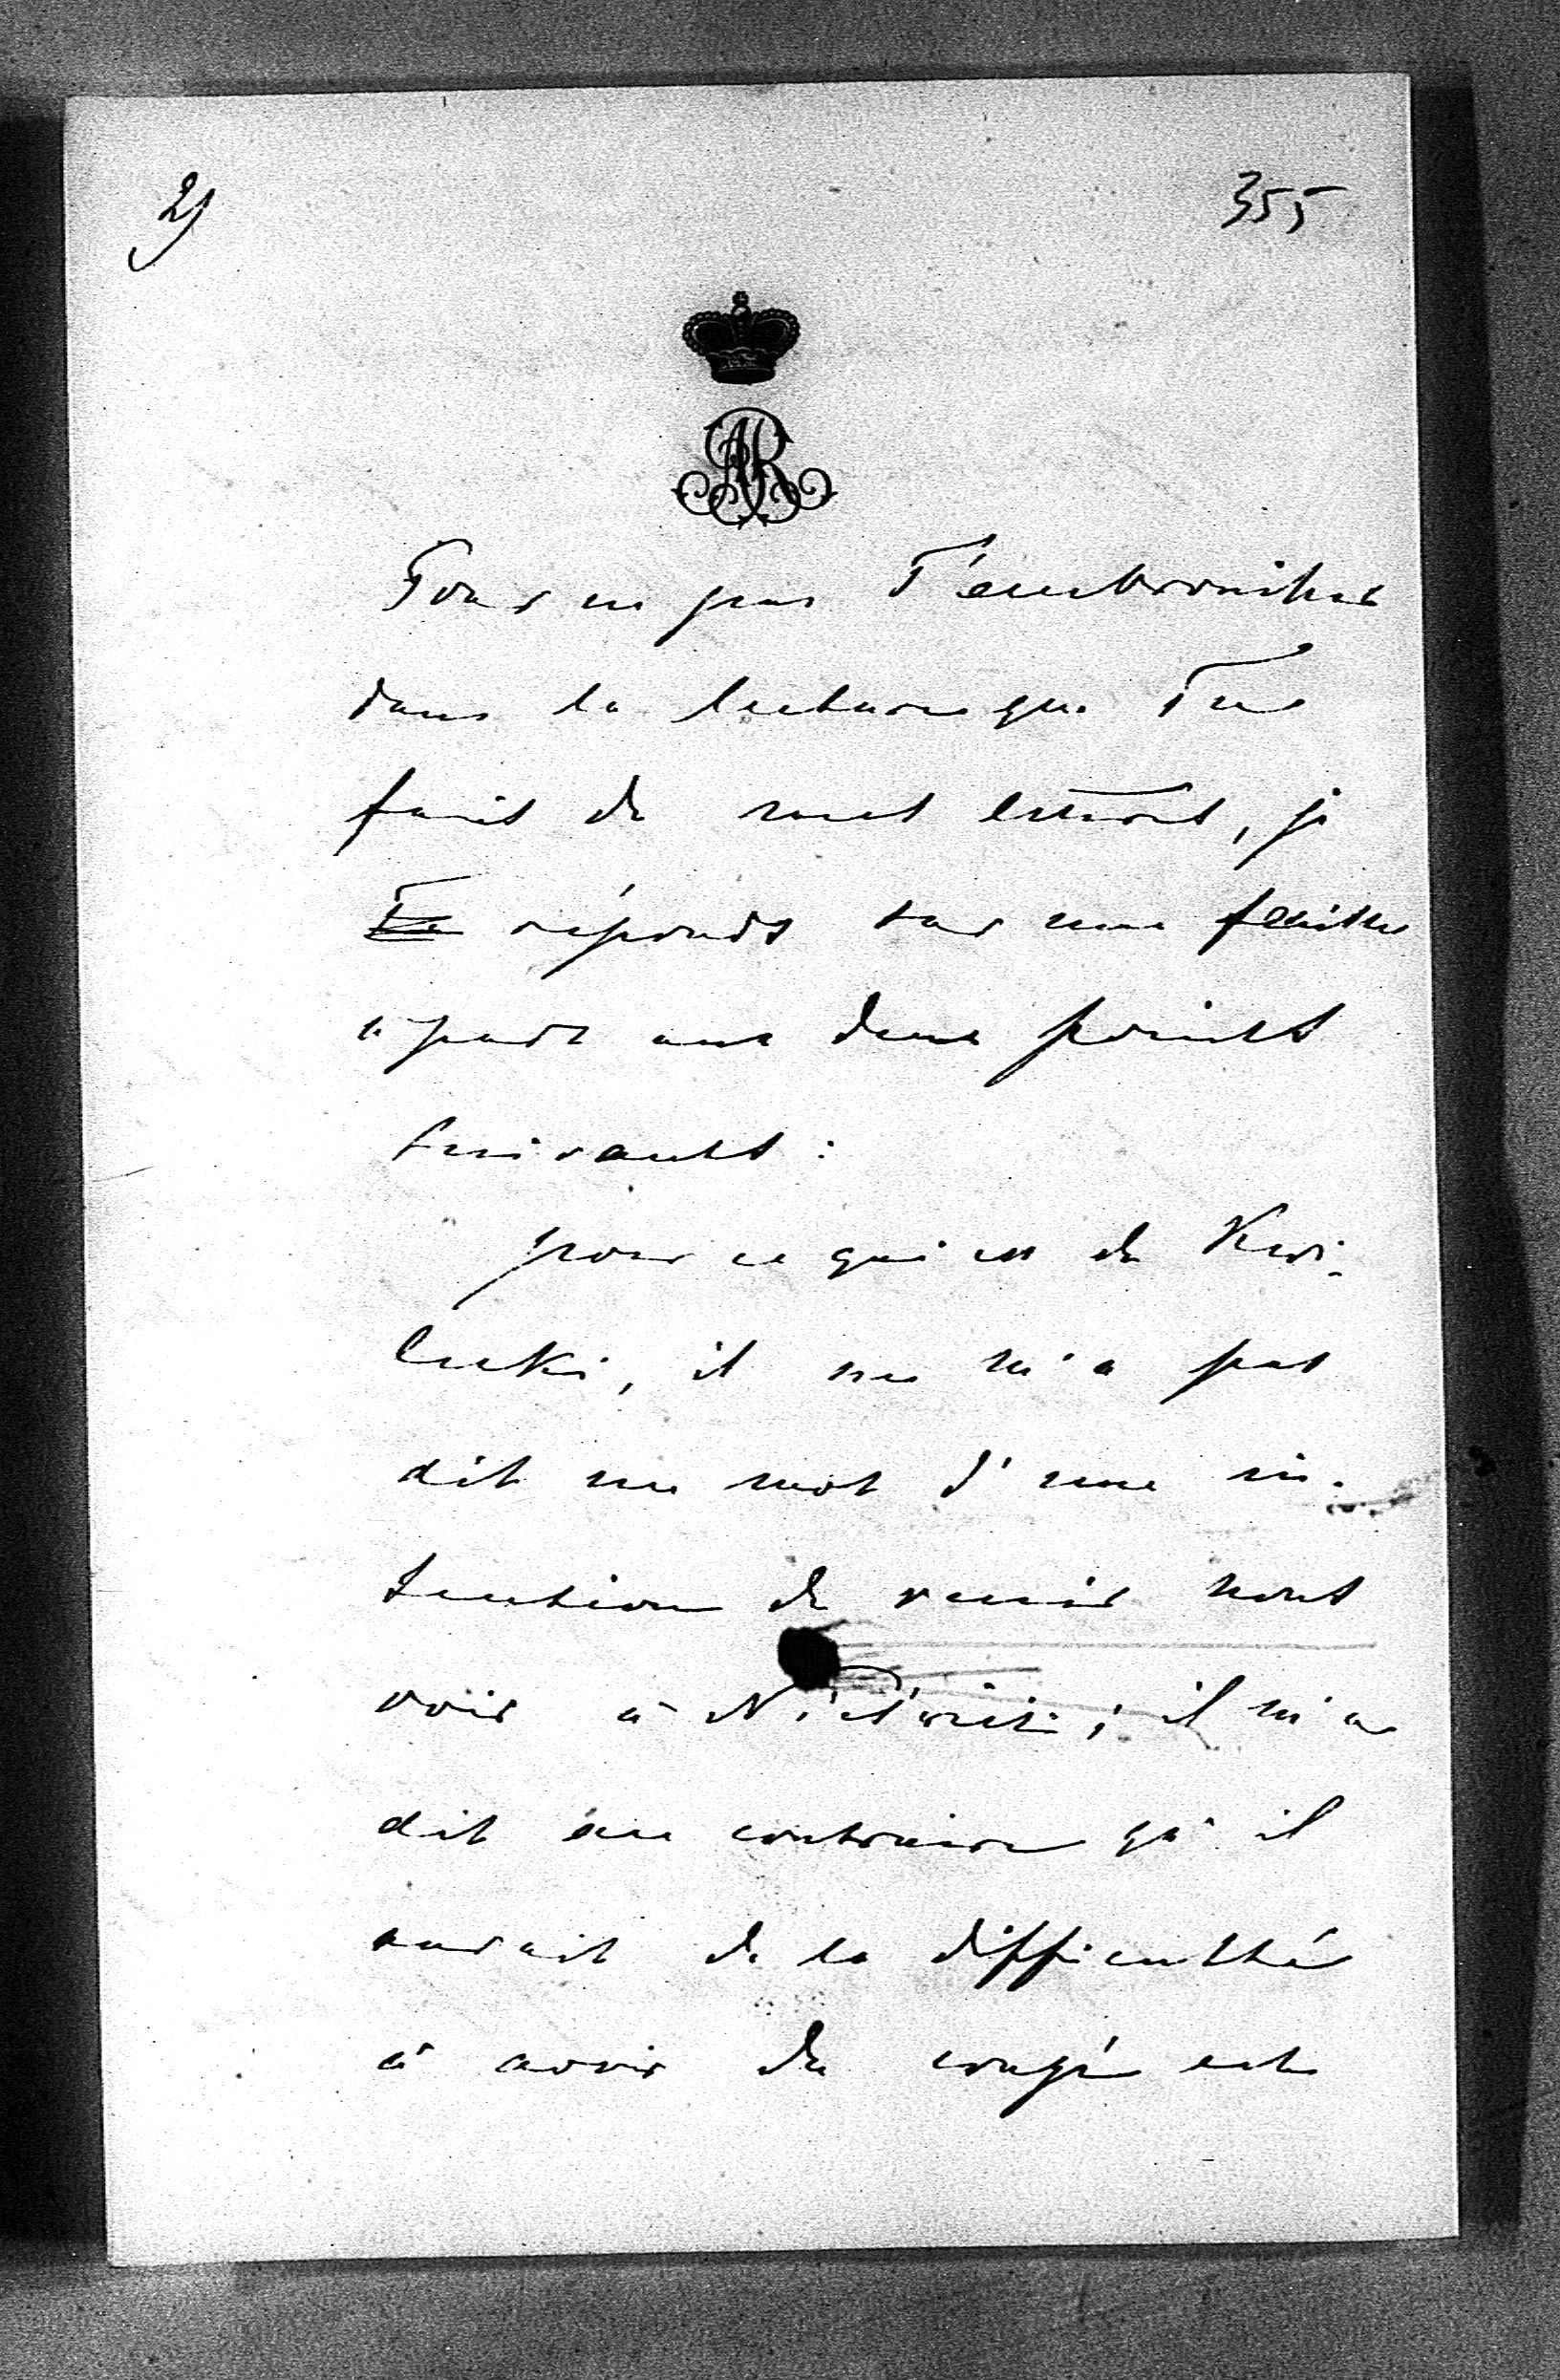 29
355
AR
Pour ne pas T'embrouiller
dans la lecture que Tu
fais de mes lettres, je
Te réponds sur une feuille
à part aux deux points
suivants :
pour ce qui est de Kwi-
lecki, il ne m'a pas
dit un mot d'une in-
tention de venir nous
voir à ; il m'a
dit au contraire qu'il
aurait de la difficulté
à avoir du congé cet